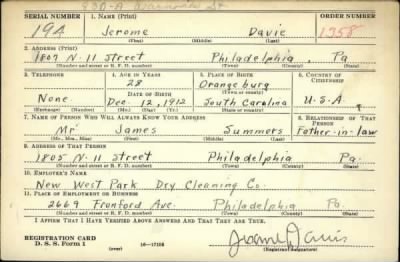 930-A
SERIAL NUMBER 1. NAME (Print) ORDER NUMBER
194 Jerome Davie 1358
(First) (Middle) (Last)
2. ADDRESS (Print)
1809 N-11 Street Philadelphia, Pa
(Number and street or R. F. D. number) (Town) (County) (State)
3. TELEPHONE 4. AGE IN YEARS 5. PLACE OF BIRTH 6. COUNTRY OF CITIZENSHIP
28 Orangeburg
(Town or county)
DATE OF BIRTH
None Dec. 12, 1912 South Carolina U.S.A
(Exchange) (Number) (Mo.) (Day) (Yr.) (State or country)
7. NAME OF PERSON WHO WILL ALWAYS KNOW YOUR ADDRESS 8. RELATIONSHIP OF THAT PERSON
Mr James Summers Father-in-law
(Mr., Mrs., Miss) (First) (Middle) (Last)
9. ADDRESS OF THAT PERSON
1805 N-11 Street Philadelphia Pa.
(Number and street or R. F. D. number) (Town) (County) (State)
10. EMPLOYER'S NAME
New West Park Dry Cleaning Co.
11. PLACE OF EMPLOYMENT OR BUSINESS
2669 Franford Ave. Philadelphia Pa.
(Number and street or R. F. D. number) (Town) (County) (State)
I AFFIRM THAT I HAVE VERIFIED ABOVE ANSWERS AND THAT THEY ARE TRUE.
REGISTRATION CARD
D. S. S. Form 1 (over) 16—17105
Jerome Davis
(Registrant's signature)